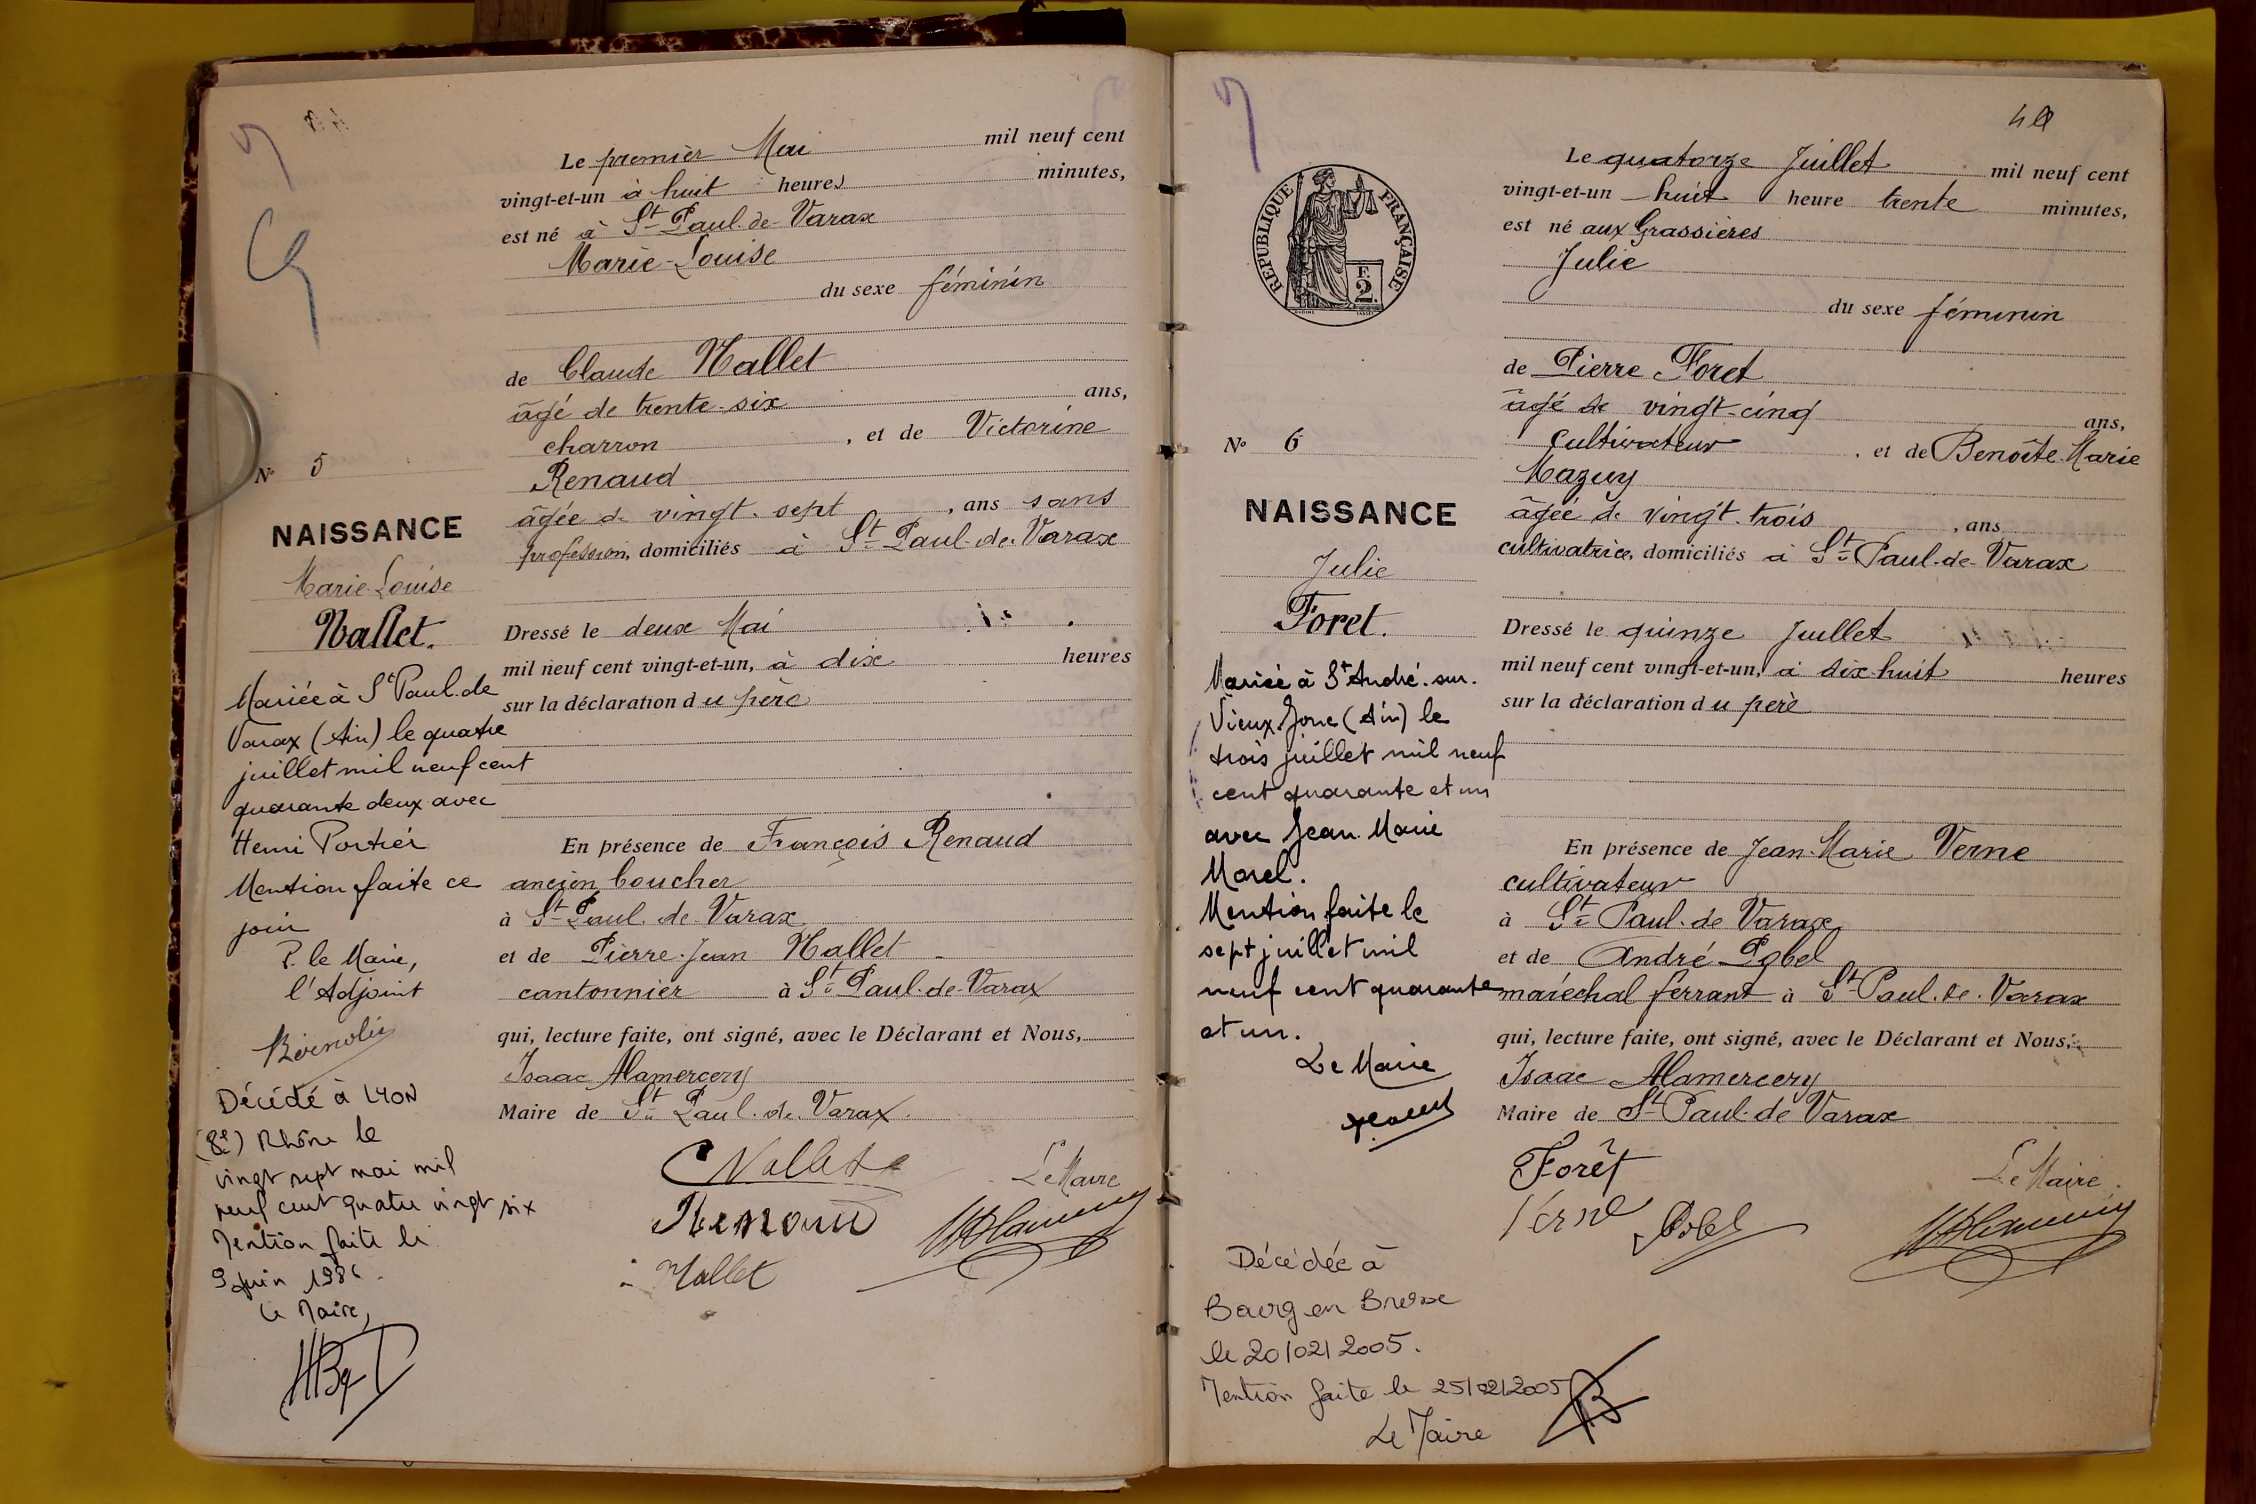 Le premier Mai mil neuf cent
vingt-et-un à huit heures minutes,
est né à St Paul-de-Varax
Marie-Louise
du sexe féminin
de Claude Nallet
âgé de trente-six ans,
charron , et de Victorine
Renaud
âgée de vingt-sept , ans sans
profession, domiciliés à St Paul-de-Varax
Dressé le deux Mai
mil neuf cent vingt-et-un, à dix heures
sur la déclaration du père
En présence de François Renaud
ancien boucher
à St Paul de Varax
et de Pierre-Jean Nallet
cantonnier à St Paul-de-Varax
qui, lecture faite, ont signé, avec le Déclarant et Nous,
Isaac Alamercery
Maire de St Paul-de-Varax.
C Nallet
Le Maire
Renaud
Nallet
No 5
NAISSANCE
Marie-Louise
Nallet.
Mariée à St Paul-de
Varax (Ain) le quatre
juillet mil neuf cent
quarante deux avec
Henri Portier
Mention faite ce
jour
P. le Maire,
l'Adjoint
Décédé à LYON
(8e) Rhône le
vingt sept mai mil
neuf cent quatre vingt six
Mention faite le
9 juin 1986.
Le Maire,
RÉPUBLIQUE FRANÇAISE
F.
2.
No 6
NAISSANCE
Julie
Foret.
Mariée à St André-sur-
Vieux-Jonc (Ain) le
trois juillet mil neuf
cent quarante et un
avec Jean Marie
Morel.
Mention faite le
sept juillet mil
neuf cent quarante
et un.
Le Maire
Le quatorze Juillet mil neuf cent
vingt-et-un huit heure trente minutes,
est né aux Grassières
Julie
du sexe féminin
de Pierre Foret
âgé de vingt-cinq ans,
cultivateur , et de Benoîte-Marie
Mazuy
âgée de vingt-trois , ans
cultivatrice, domiciliés à St Paul-de-Varax
Dressé le quinze Juillet
mil neuf cent vingt-et-un, à dix-huit heures
sur la déclaration du père
En présence de Jean-Marie Verne
cultivateur
à St Paul-de Varax
et de André Pobel
maréchal ferrant à St Paul-de-Varax
qui, lecture faite, ont signé, avec le Déclarant et Nous,
Isaac Alamercery
Maire de St Paul-de Varax
Forêt
Le Maire
Verne Pobel
Décédée à
Bourg en Bresse
le 20/02/2005.
Mention faite le 25/02/2005
Le Maire